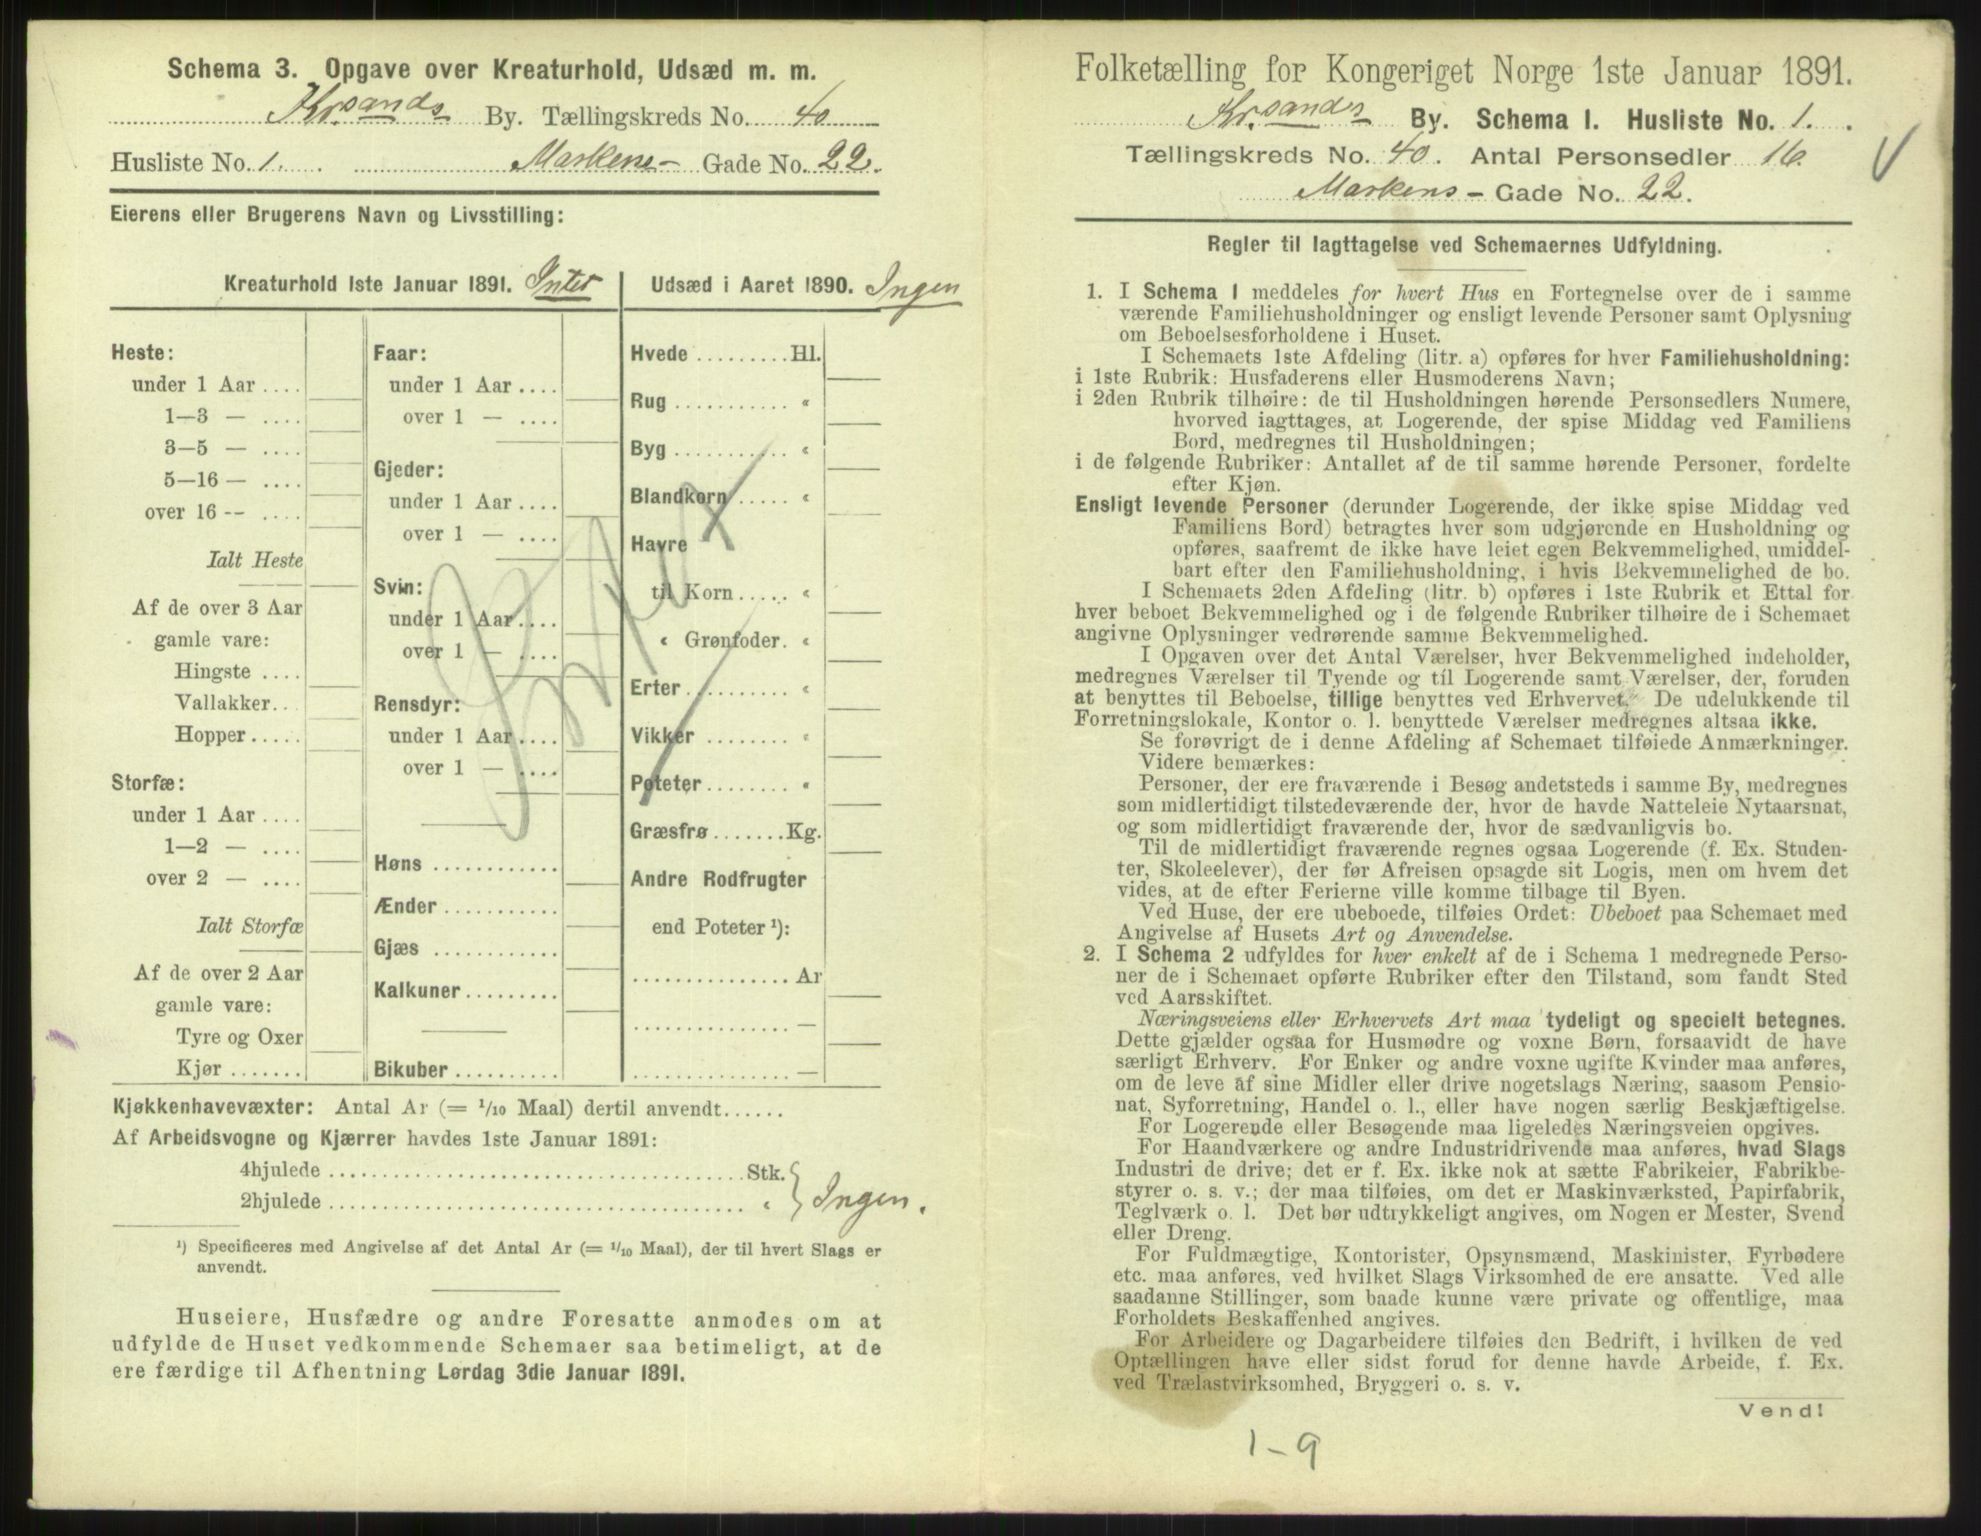 Schema 3. Opgave over Kreaturhold, Udsæd m. m.
Krsands By. Tællingskreds No. 40
Husliste No. 1. Markens- Gade No. 22.
Eierens eller Brugerens Navn og Livsstilling:
Kreaturhold 1ste Januar 1891. Intet
Heste:
under 1 Aar ....
1—3 — ....
3—5 — ....
5—16 — ....
over 16 -- ....
Ialt Heste
Af de over 3 Aar
gamle vare:
Hingste ....
Vallakker..
Hopper.....
Storfæ:
under 1 Aar ....
1—2 — ....
over 2 — ....
Ialt Storfæ
Af de over 2 Aar
gamle vare:
Tyre og Oxer
Kjør .......
Faar:
under 1 Aar ....
over 1 — ....
Gjeder:
under 1 Aar ....
over 1 — ....
Svin:
under 1 Aar....
over 1 — ....
Rensdyr:
under 1 Aar....
over 1 — ....
Høns ............
Ænder ...........
Gjæs ............
Kalkuner.........
Bikuber ..........
Udsæd i Aaret 1890. Ingen
Hvede .........Hl.
Rug ........... «
Byg ........... «
Blandkorn ..... «
Havre
til Korn ..... «
« Grønfoder. «
Erter.......... «
Vikker ........ «
Poteter........ «
Græsfrø .......Kg.
Andre Rodfrugter
end Poteter ¹):
............... Ar
............... —
............... —
Kjøkkenhavevæxter: Antal Ar (= 1/10 Maal) dertil anvendt......
Af Arbeidsvogne og Kjærrer havdes 1ste Januar 1891:
4hjulede ........................................Stk.
2hjulede ........................................ «
} Ingen.
¹) Specificeres med Angivelse af det Antal Ar (= 1/10 Maal), der til hvert Slags er
anvendt.
Huseiere, Husfædre og andre Foresatte anmodes om at
udfylde de Huset vedkommende Schemaer saa betimeligt, at de
ere færdige til Afhentning Lørdag 3die Januar 1891.
Folketælling for Kongeriget Norge 1ste Januar 1891.
Krsands By. Schema I. Husliste No. 1.
Tællingskreds No. 40. Antal Personsedler 16.
Markens- Gade No. 22.
Regler til Iagttagelse ved Schemaernes Udfyldning.
1. I Schema I meddeles for hvert Hus en Fortegnelse over de i samme
værende Familiehusholdninger og ensligt levende Personer samt Oplysning
om Beboelsesforholdene i Huset.
I Schemaets 1ste Afdeling (litr. a) opføres for hver Familiehusholdning:
i 1ste Rubrik: Husfaderens eller Husmoderens Navn;
i 2den Rubrik tilhøire: de til Husholdningen hørende Personsedlers Numere,
hvorved iagttages, at Logerende, der spise Middag ved Familiens
Bord, medregnes til Husholdningen;
i de følgende Rubriker: Antallet af de til samme hørende Personer, fordelte
efter Kjøn.
Ensligt levende Personer (derunder Logerende, der ikke spise Middag ved
Familiens Bord) betragtes hver som udgjørende en Husholdning og
opføres, saafremt de ikke have leiet egen Bekvemmelighed, umiddel-
bart efter den Familiehusholdning, i hvis Bekvemmelighed de bo.
I Schemaets 2den Afdeling (litr. b) opføres i 1ste Rubrik et Ettal for
hver beboet Bekvemmelighed og i de følgende Rubriker tilhøire de i Schemaet
angivne Oplysninger vedrørende samme Bekvemmelighed.
I Opgaven over det Antal Værelser, hver Bekvemmelighed indeholder,
medregnes Værelser til Tyende og til Logerende samt Værelser, der, foruden
at benyttes til Beboelse, tillige benyttes ved Erhvervet. De udelukkende til
Forretningslokale, Kontor o. l. benyttede Værelser medregnes altsaa ikke.
Se forøvrigt de i denne Afdeling af Schemaet tilføiede Anmærkninger.
Videre bemærkes:
Personer, der ere fraværende i Besøg andetsteds i samme By, medregnes
som midlertidigt tilstedeværende der, hvor de havde Natteleie Nytaarsnat,
og som midlertidigt fraværende der, hvor de sædvanligvis bo.
Til de midlertidigt fraværende regnes ogsaa Logerende (f. Ex. Studen-
ter, Skoleelever), der før Afreisen opsagde sit Logis, men om hvem det
vides, at de efter Ferierne ville komme tilbage til Byen.
Ved Huse, der ere ubeboede, tilføies Ordet: Ubeboet paa Schemaet med
Angivelse af Husets Art og Anvendelse.
2. I Schema 2 udfyldes for hver enkelt af de i Schema 1 medregnede Perso-
ner de i Schemaet opførte Rubriker efter den Tilstand, som fandt Sted
ved Aarsskiftet.
Næringsveiens eller Erhvervets Art maa tydeligt og specielt betegnes.
Dette gjælder ogsaa for Husmødre og voxne Børn, forsaavidt de have
særligt Erhverv. For Enker og andre voxne ugifte Kvinder maa anføres,
om de leve af sine Midler eller drive nogetslags Næring, saasom Pensio-
nat, Syforretning, Handel o. l., eller have nogen særlig Beskjæftigelse.
For Logerende eller Besøgende maa ligeledes Næringsveien opgives.
For Haandværkere og andre Industridrivende maa anføres, hvad Slags
Industri de drive; det er f. Ex. ikke nok at sætte Fabrikeier, Fabrikbe-
styrer o. s. v.; der maa tilføies, om det er Maskinværksted, Papirfabrik,
Teglværk o. l. Det bør udtrykkeligt angives, om Nogen er Mester, Svend
eller Dreng.
For Fuldmægtige, Kontorister, Opsynsmænd, Maskinister, Fyrbødere
etc. maa anføres, ved hvilket Slags Virksomhed de ere ansatte. Ved alle
saadanne Stillinger, som baade kunne være private og offentlige, maa
Forholdets Beskaffenhed angives.
For Arbeidere og Dagarbeidere tilføies den Bedrift, i hvilken de ved
Optællingen have eller sidst forud for denne havde Arbeide, f. Ex.
ved Trælastvirksomhed, Bryggeri o. s. v.
Vend!
1-9